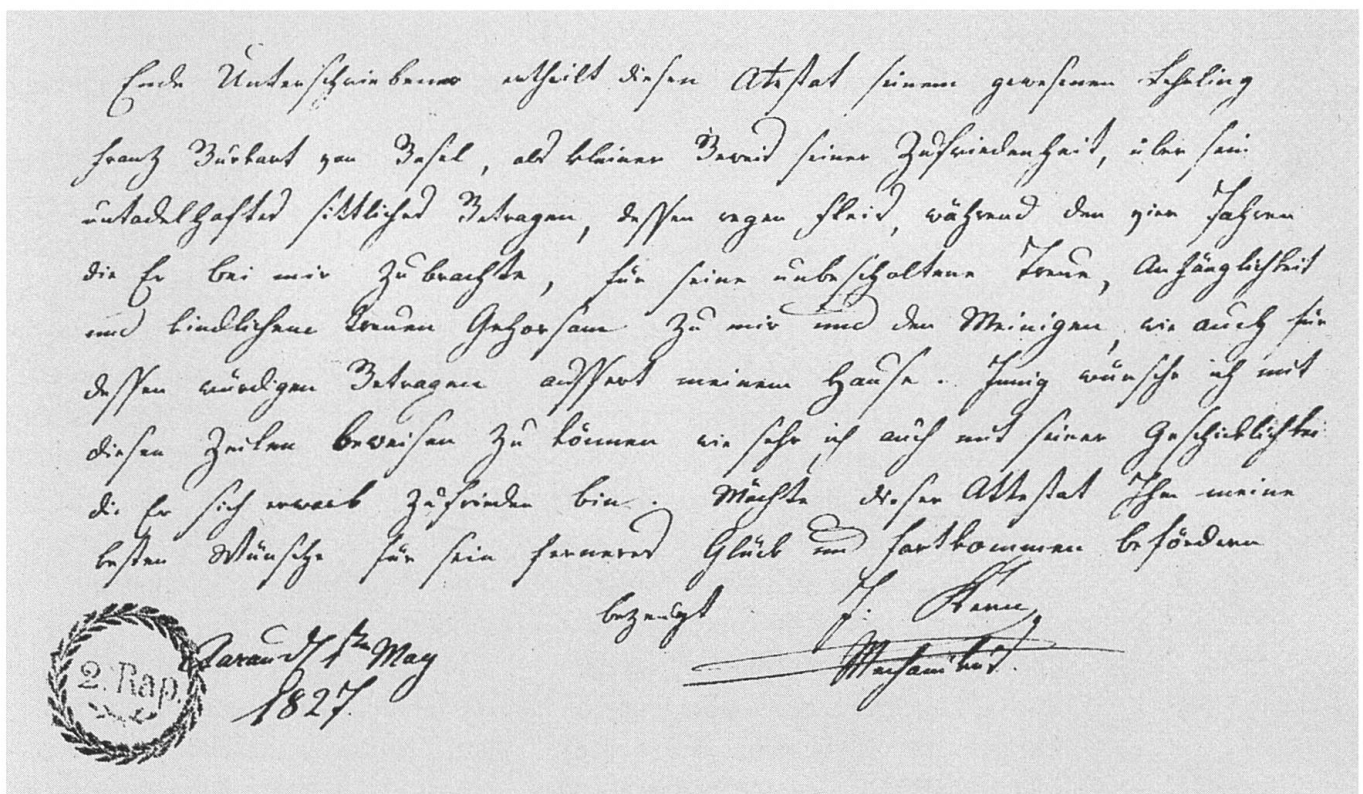 Ends Unterschriebener ertheilt diesen Atestat seinem gewesenen Lehrling
Frantz Burkart von Basel, als kleiner Beweis seiner Zufriedenheit, über sein
untadelhaftes sittliches Betragen, dessen regen Fleis, während den vier Jahren
die Er bei mir zubrachte, für seine unbescholtene Treue, Anhänglichkeit
und kindlichem treuen Gehorsam zu mir und den Meinigen, wie auch für
dessen würdigen Betragen aussert meinem Hause. Innig wünsche ich mit
diesen Zeilen beweisen zu können wie sehr ich auch mit seiner Geschicklichkei
die Er sich erwarb zufrieden bin. Möchte dieser Attestat Ihm meine
besten Wünsche für sein ferneres Glück und Fortkommen befördern
bezeugt J. Kern
Mechanikus.
Aarau d. 1ten May
1827.
2. Rap.